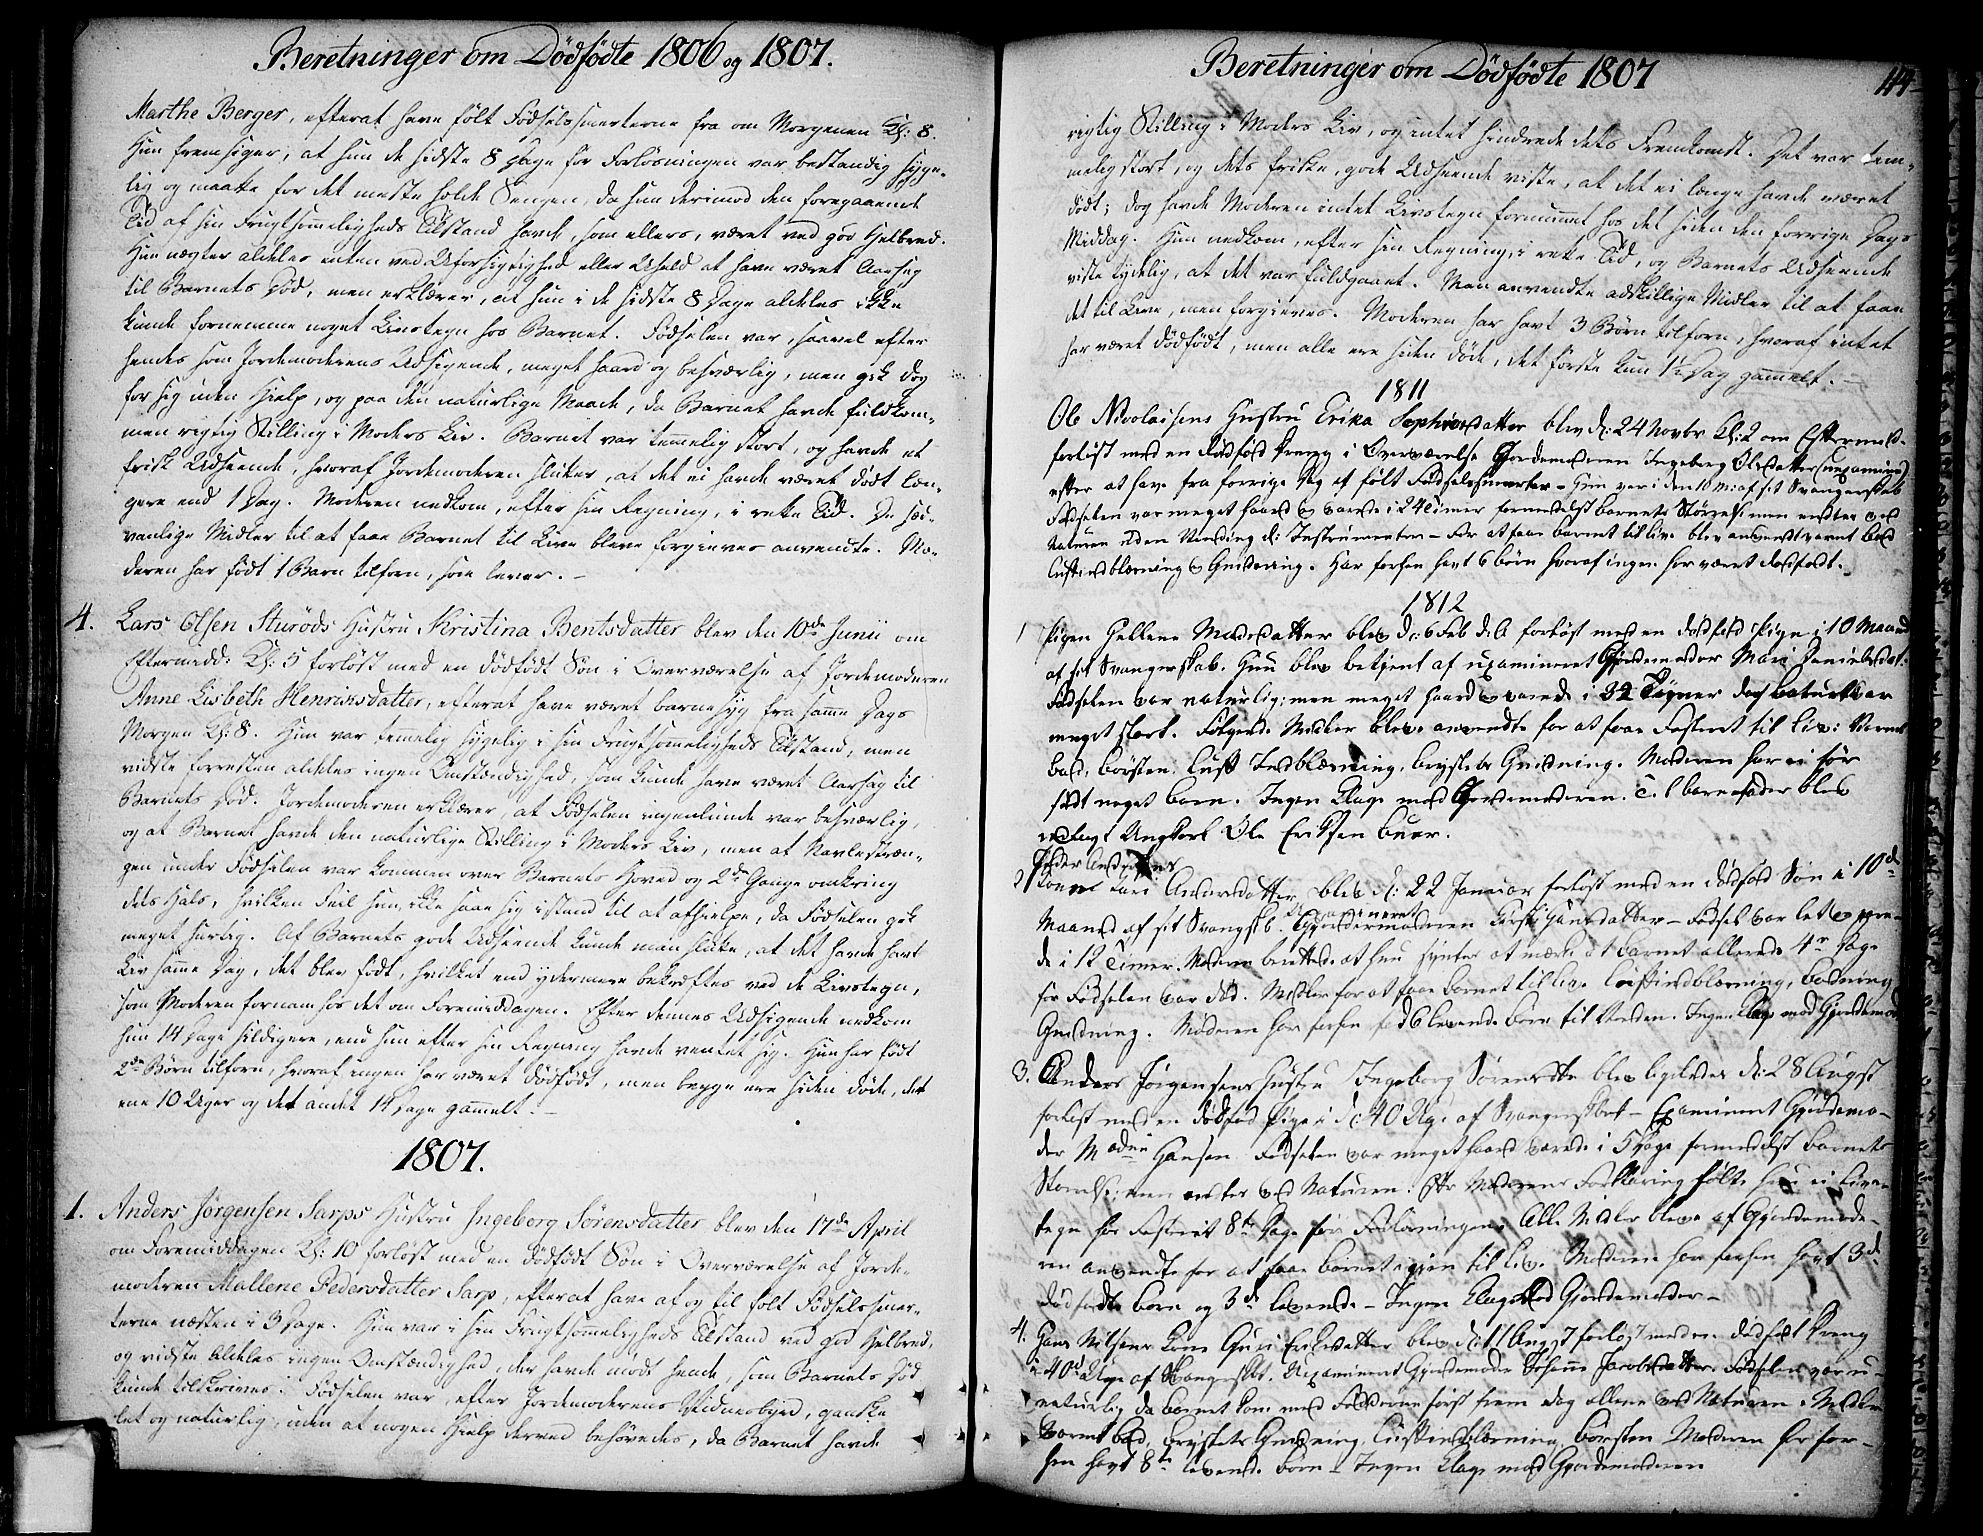 Beretninger om Dödfödte 1806 og 1807.
Marthe Berger, efterat have fölt Födselssmerterne fra om Morgenen Kl: 8.
Hun fremsiger, at hun de sidste 8 Dage för Forlösningen var bestandig syge-
lig og maatte for det meste holde Sengen, da hun derimod den foregaaende
Tid af sin Frugtsommeligheds Tilstand havde, som ellers, været ved god Helbred.
Hun nægter aldeles enten ved Uforsigtighed eller Uheld at have været Aarsag
til Barnets Död, men erklærer, at hun i de sidste 8 Dage aldeles ikke
kunde fornemme noget Livstegn hos Barnet. Födselen var, saavel efter
hendes som Jordemoderens Udsigende, meget haard og besværlig, men gik dog
for sig uden Hielp, og paa den naturlige Maade, da Barnet havde fuldkom-
men rigtig Stilling i Moders Liv. Barnet var temmelig stort, og havde et
frisk Udseende, hvoraf Jordemoderen slutter, at det ei havde været dödt læn-
gere end 1 Dag. Moderen nedkom, efter sin Regning, i rette Tid. De sæd-
vanlige Midler til at faae Barnet til Live bleve forgieves anvendte. Mo-
deren har födt 1 Barn tilforn, som lever. –
4. Lars Olsen Sturöds Hustru Kristina Bentsdatter blev den 10de Junii om
Eftermidd: Kl: 5 forlöst med en dödfödt Sön i Overværelse af Jordemoderen
Anne Lisbeth Henriksdatter, efterat have været barnesyg fra samme Dags
Morgen Kl: 8. Hun var temelig sygelig i sin Frugtsommeligheds Tilstand, men
vidste forresten aldeles ingen Omstændighed, som kunde have været Aarsag til
Barnets Död. Jordemoderen erklærer, at Födselen ingenlunde var besværlig,
og at Barnet havde den naturlige Stilling i Moders Liv, men at Navlestræn-
gen under Födselen var kommen over Barnets Hoved og 2de Gange omkring
dets Hals, hvilken Feil hun ikke saae sig istand til at afhielpe, da Födselen gik
meget hurtig. Af Barnets gode Udseende kunde man slutte, at det havde havt
Liv samme Dag, det blev födt, hvilket end ydermere bekræftes ved de Livstegn,
som Moderen fornam hos det om Formiddagen. Efter dennes Udsigende nedkom
hun 14 Dage sildigere, end hun efter sin Regning havde ventet sig. Hun har födt
2de Börn tilforn, hvoraf ingen har været dödfödt, men begge ere siden döde, det
ene 10 Uger og det andet 14 Dage gammelt. –
1807.
1. Anders Jörgensen Sarps Hustru Ingeborg Sörensdatter blev den 17de April
om Foremiddagen Kl: 10 forlöst med en dödfödt Sön i Overværelse af Jorde-
moderen Mallene Pedersdatter Sarp, efterat have af og til fölt Födselssmer-
terne næsten i 3 Dage. Hun var i sin Frugtsommeligheds Tilstand ved god Helbred,
og vidste aldeles ingen Omstændighed, der havde mödt hende, som Barnets Död
kunde tilskrives. Födselen var, efter Jordemoderens Vidnesbyrd, ganske
let og naturlig, uden at nogen Hielp derved behövedes, da Barnet havde
Beretninger om Dödfödte 1807
114
rigtig Stilling i Moders Liv, og intet hindrede dets Fremkomst. Det var tem-
melig stort, og dets friske, gode Udseende viste, at det ei længe havde været
dödt; dog havde Moderen intet Livstegn fornummet hos det siden den forrige Dags
Middag. Hun nedkom, efter sin Regning, i rette Tid, og Barnets Udseende
viste tydelig, at det var fuldgaaet. Man anvendte adskillige Midler til at faae
det til Live, men forgieves. Moderen har havt 3 Börn tilforn, hvoraf intet
har været dödfödt, men alle ere siden döde, det förste kun 1½ Dag gammelt. –
1811
Ole Nicolaisens Hustru Erika Sophiesdatter blev d: 24 Novbr Kl: 2 om Eftermid.
forlöst med en dödföd Dreng i Overværelse Gjordemoderen Ingeborg Olsdatter (uexamineret)
efter at have fra forrige Dag af fölt Födselssmerter – Hun var i den 10 M: af sit Svangerskab
Födselen var meget haard og varede i 24 Timer formedelst barnets Störrelse men endtes ved
Naturen uden Vending el: Instrumenter – For at faae barnet til live blev anvendt varmt bad
luftindblæsning & Gnidning. Har forhen havt 6 börn hvoraf ingen har været dödfödt.
1812
1 Pigen Hellene Madsdatter blev d: 6 Feb d.A. forlöst med en dödföd Pige i 10 Maaned
af sit Svangerskab. Hun blev betjent af uexamineret Gjordemoder Mari Danielsdat.
Födselen var naturlig: men meget haard & varede i 32 Timer dog barnet var
meget stort. Fölgende Midler bleve anvendte for at faae Fosteret til live: Varmt
bad, börsten, luft Indblæsning, brystets Gnidning. Moderen har ei för
födt noget barn. Ingen Klage mod Gjordemoderen. Til barnefader blev
udlagt Ungkarl Ole Eriksen Buer.
2 Peder Andersens
Kone Kari Andersdatter blev d: 22 Januar forlöst med en dödföd Sön i 10de
Maaned af sit Svangersk. Uexamineret Gjordemoderen Hansdatter – Födsel var let & vare-
de i 12 Timer. Moderen berettede at hun syntes at mærke at barnet allerede 4re Dage
for Födselen var död. Midler for at faae barnet til live luftindblæsning, badning,
Gnidning. Moderen har forhen föd 6 levende börn til Verden. Ingen Klage mod Gjordemod
3. Anders Jörgensens Hustru Ingeborg Sörensdtr blev ligeledes d: 28 August
forlöst med en dödföd Pige i d: 40 Uge af Svangerskabet – Examineret Gjordemo-
der Madme Hansen Födselen var meget haard varede i 5 Dage formedelst barnets
Störrelse; men endtes ved Naturen. Efter Moderens Forklaring fölte hun ei Livs-
tegn hos Fosteret 8te Dage för Forlösningen. Alle Midler bleve af Gjordemode-
ren anvendte for at faae barnet igjen til live. Moderen har forhen havt 3de
dödfödte börn og 3de levende – Ingen Klage Mod Gjordemoder –
4. Hans Nilsens Kone Guri Eriksdatter blev d: 11 August forlöst med en dödfödt Dreng
i 40de Uge af Svangerskbt. Uexamineret Gjordemoder Johanne Jacobsdatter. Födselen var u-
naturlig da barnet kom med Födderne först frem dog allene ved Naturen. Midler
Varmt bad, brystets Gnidning, luftindblæsning, börsten Moderen har for-
hen havt 8te levende börn – Ingen Klage mod Gjordemoderen